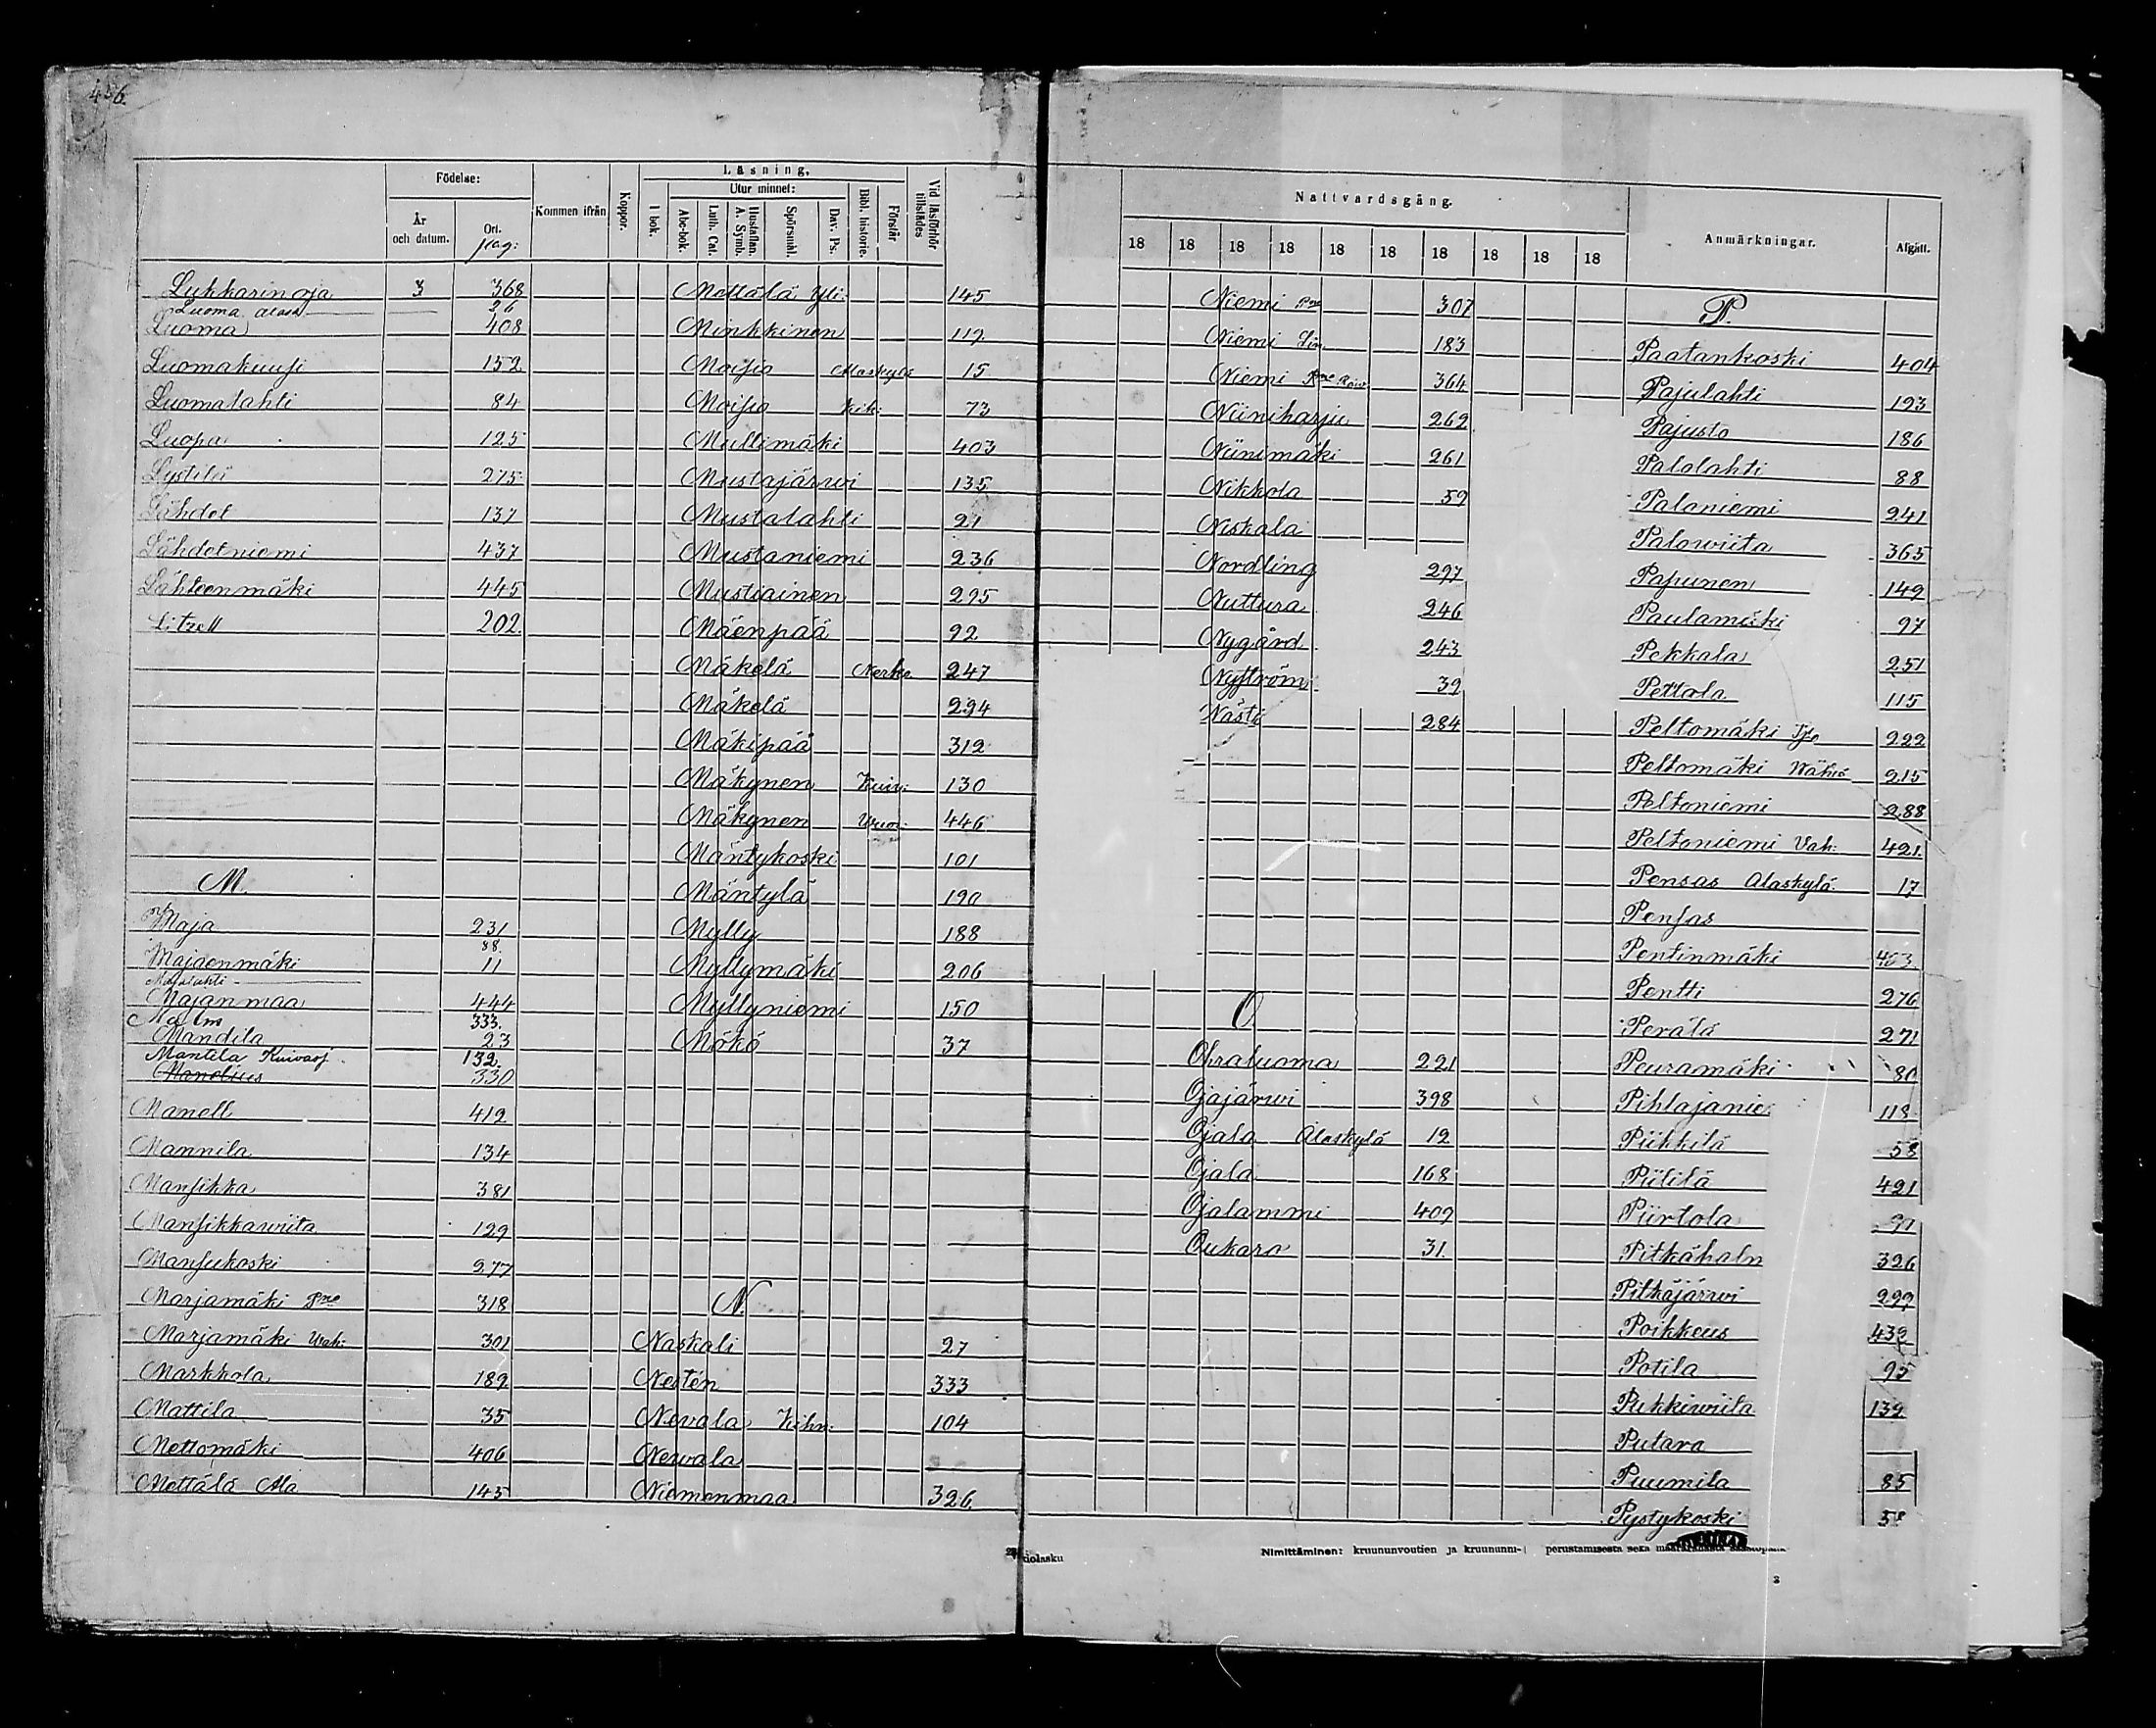 456.
Födelse:
År och datum.
Ort. pag:
Kommen ifrån
Koppor.
Läsning,
I bok.
Utur minnet:
Abc-bok.
Luth. Cat.
Hustaflan. A. Symb.
Spörsmål.
Dav. Ps.
Bibl. historie.
Förstår
Vid läsförhör tillstädes
Lukkarinoja 3 368
Luoma alask 26
Luoma 408
Luomakuusi 152
Luomalahti 84
Luopa 125
Lystilä 275
Lähdet 137
Lähdetniemi 437
Lähteenmäki 445
Litzell 202
M.
Maja 231
88
Majaenmäki 11
Majalahti
Majanmaa 444
Malm 333.
Mandila 23
Mantila Kuivasj. 132
Manelius 330
Manell 412
Mannila 134
Mansikka 381
Mansikkawiita 129
Mansukoski 277
Marjamäki Pne 318
Marjamäki Wah: 301
Markkola 189
Mattila 35
Mettomäki 406
Mettälä Ala 145
Mettälä Yli: 145
Minkkinen 119
Moisio Alaskylä 15
Moisio Kih: 73
Mullimäki 403
Mustajärwi 135
Mustalahti 21
Mustaniemi 236
Mustiainen 295
Mäenpää 92
Mäkelä Nerko 247
Mäkelä 294
Mäkipää 312
Mäkynen Kuiv: 130
Mäkynen 446
Mäntykoski 101
Mäntylä 190
Mylly 188
Myllymäki 206
Myllyniemi 150
Mökö 37
N.
Naskali 27
Nestén 333
Nevala Kihn: 104
Newala
Niemenmaa 326
Nattvardsgång.
18 18 18 18 18 18 18 18 18 18
Anmärkningar.
Afgått.
Niemi Pne 307
Niemi Lin 183
Niemi Pne 364
Niiniharju 269
Niinimäki 261
Nikkola 59
Niskala
Nordling 297
Nuttura 246
Nygård 243
Nyström 39
Nästi 284
O.
Ohraluoma 221
Ojajärwi 398
Ojala Alaskylä 12
Ojala 168
Ojalammi 409
Oukara 31.
P.
Paatankoski 404
Pajulahti 193
Pajusto 186
Palolahti 88
Paloniemi 241
Palowiita 365
Papunen 149
Paulamäki 97
Pekkala 251
Pettola 115
Peltomäki 222
Peltomäki Wähä 215
Peltoniemi 288
Peltoniemi Vah: 421.
Pensas Alaskylä 17
Pensas
Pentinmäki 403
Pentti 276
Perälä 271
Peuramäki 80
Pihlajanie 118
Piikkilä 58
Piililä 421
Piirtola 91
Pitkähalm 326
Pitkäjärwi 299
Poikkeus 432
Potila 95
Pukkiwiita 132
Putara
Puumila 85
Pystykoski 58
tiolasku
Nimittäminen: kruununvoutien ja kruununni-
perustamisesta sekä
3